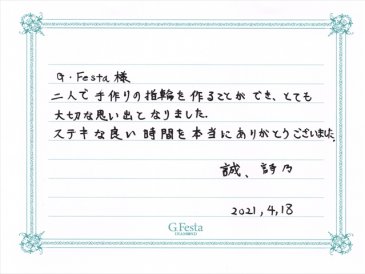 G・Festa 様
二人で手作りの指輪を作ることができ、とても
大切な思い出となりました。
ステキな良い時間を本当にありがとうございました。
誠、詩乃
2021,4,18
G.Festa
DIAMOND